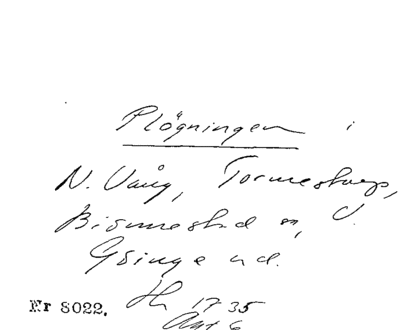 Plögningen i
N. Vång, Tormestorp,
Brönnestad sn, V.
Göinge hd.
Nr 8022. 1735